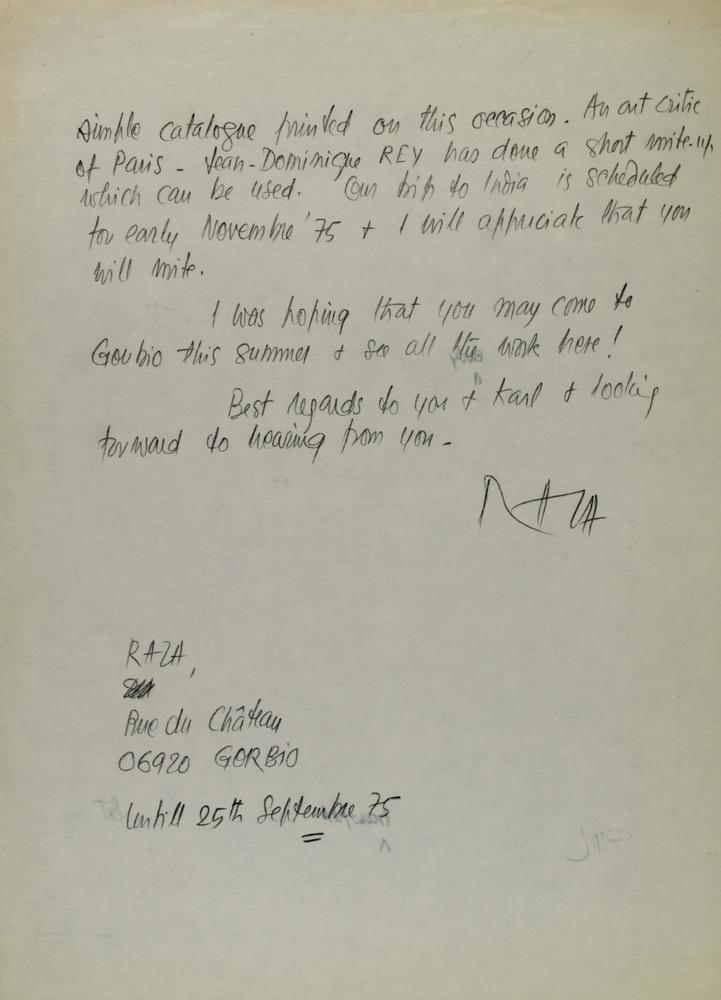 simple catalogue printed on this occasion. An art critic
of Paris - Jean-Dominique REY has done a short write-up
which can be used. Our trip to India is scheduled
for early Novembre '75 + I will appriciate that you
will write.
I was hoping that you may come to
Gorbio this summer + see all the work here!
Best regards to you + Karl + looking
forward to hearing from you -
RAZA
RAZA,
Rue du Château
06920 GORBIO
Untill 25th Septembre 75